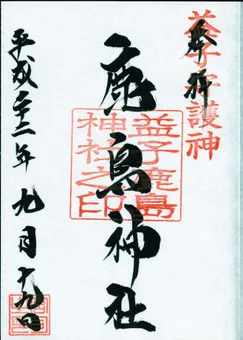 奉拝
益子守護神
鹿島神社
益子鹿島
神社之印
平成二十二年九月十九日